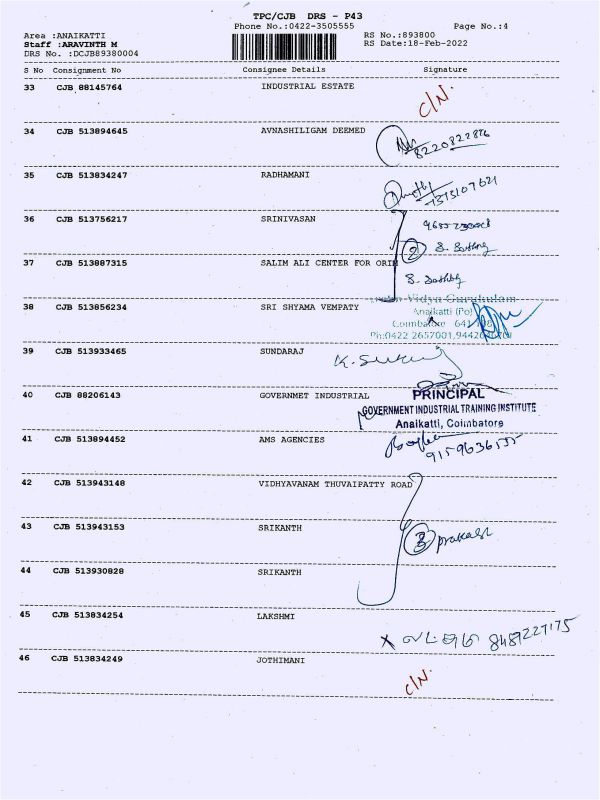 TPC/CJB DRS - P43
Phone No.:0422-3505555 Page No.:4
Area :ANAIKATTI RS No.:893800
Staff :ARAVINTH M RS Date:18-Feb-2022
DRS No. :DCJB89380004
S No Consignment No Consignee Details Signature
33 CJB 88145764 INDUSTRIAL ESTATE
C/N.
34 CJB 513894645 AVNASHILIGAM DEEMED
8220822826
35 CJB 513834247 RADHAMANI
36 CJB 513756217 SRINIVASAN
2
37 CJB 513887315 SALIM ALI CENTER FOR ORI
38 CJB 513856234 SRI SHYAMA VEMPATY
Vidya Gurukulam
Anaikatti (Po)
Coimbatore 641
Ph:0422 2657001,
39 CJB 513933465 SUNDARAJ
40 CJB 88206143 GOVERNMET INDUSTRIAL
PRINCIPAL
GOVERNMENT INDUSTRIAL TRAINING INSTITUTE
Anaikatti, Coimbatore
41 CJB 513894452 AMS AGENCIES
9159636535
42 CJB 513943148 VIDHYAVANAM THUVAIPATTY ROAD
43 CJB 513943153 SRIKANTH
3 prakash
44 CJB 513930828 SRIKANTH
45 CJB 513834254 LAKSHMI
8489227175
46 CJB 513834249 JOTHIMANI
C/N.